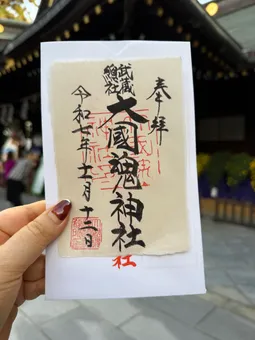 奉拝
武蔵
總社
大國魂神社
令和七年十一月十二日
社